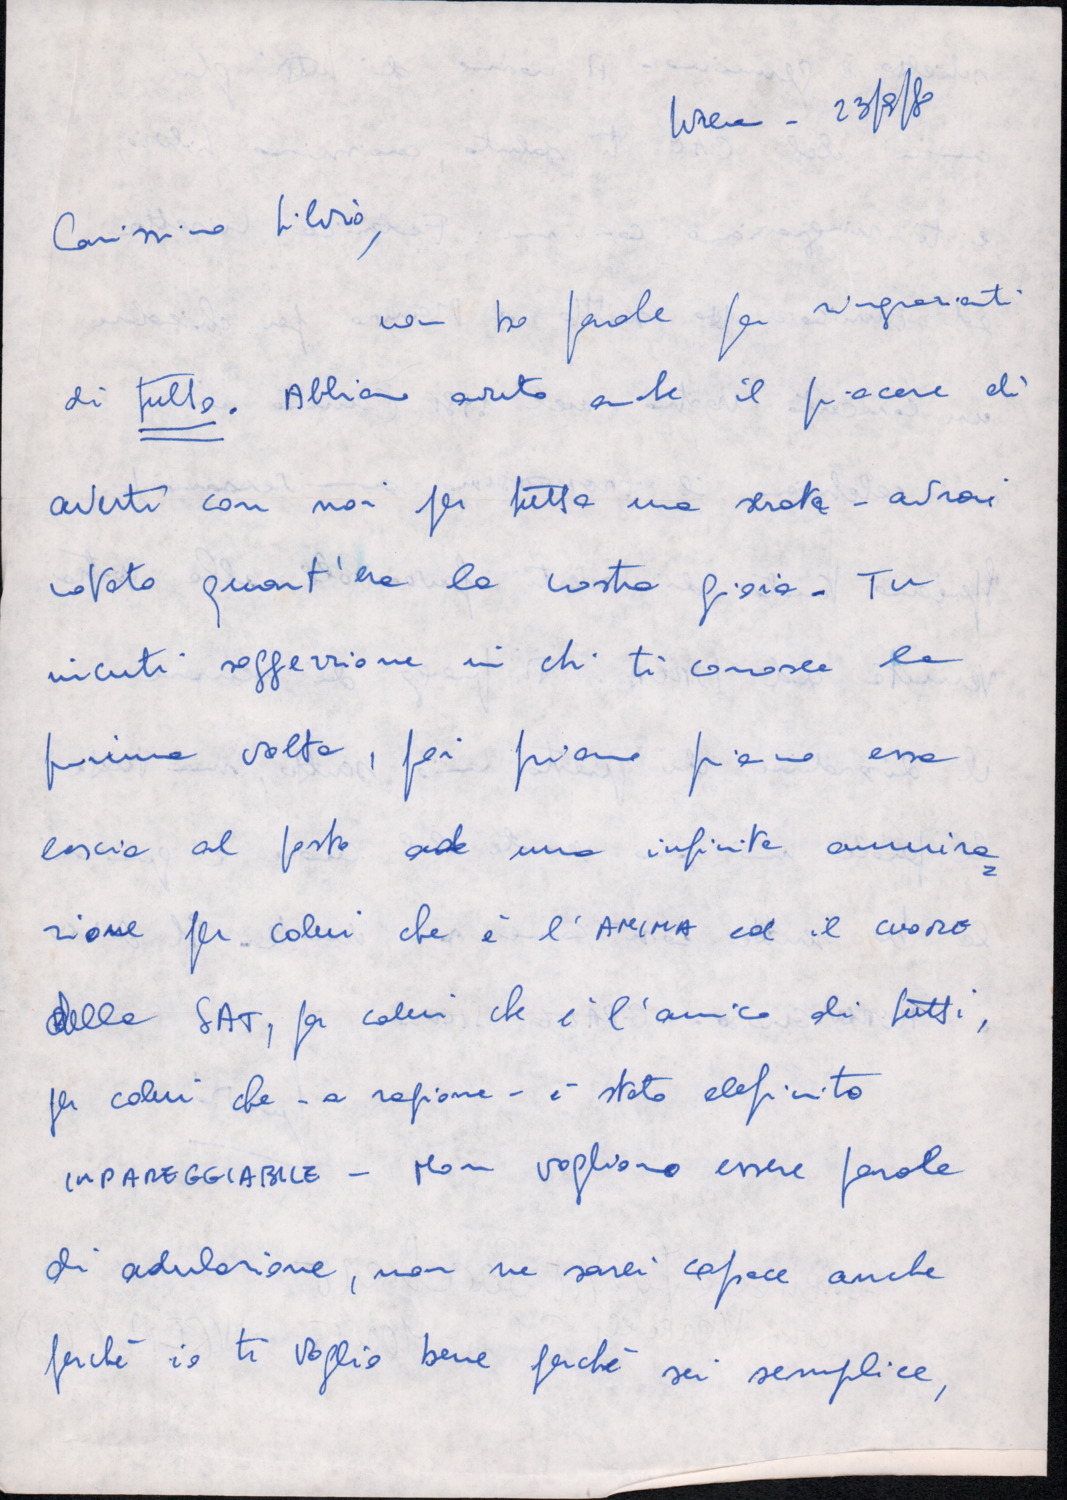 23/9/80
Carissimo Silvio,
non ho parole per ringraziarti
di tutto. Abbiamo avuto anche il piacere di
averti con noi per tutta una serata - avrai
notato quant'era la nostra gioia - Tu
incuti soggezzione in chi ti conosce la
prima volta, poi piano piano essa
lascia al posto ad una infinita ammira=
zione per colui che è l'ANIMA ed il CUORE
della SAT, per colui che è l'amico di tutti,
per colui che - a ragione - è stato definito
IMPAREGGIABILE - Non vogliono essere parole
di adulazione, non ne sarei capace anche
perchè io ti voglio bene perchè sei semplice,